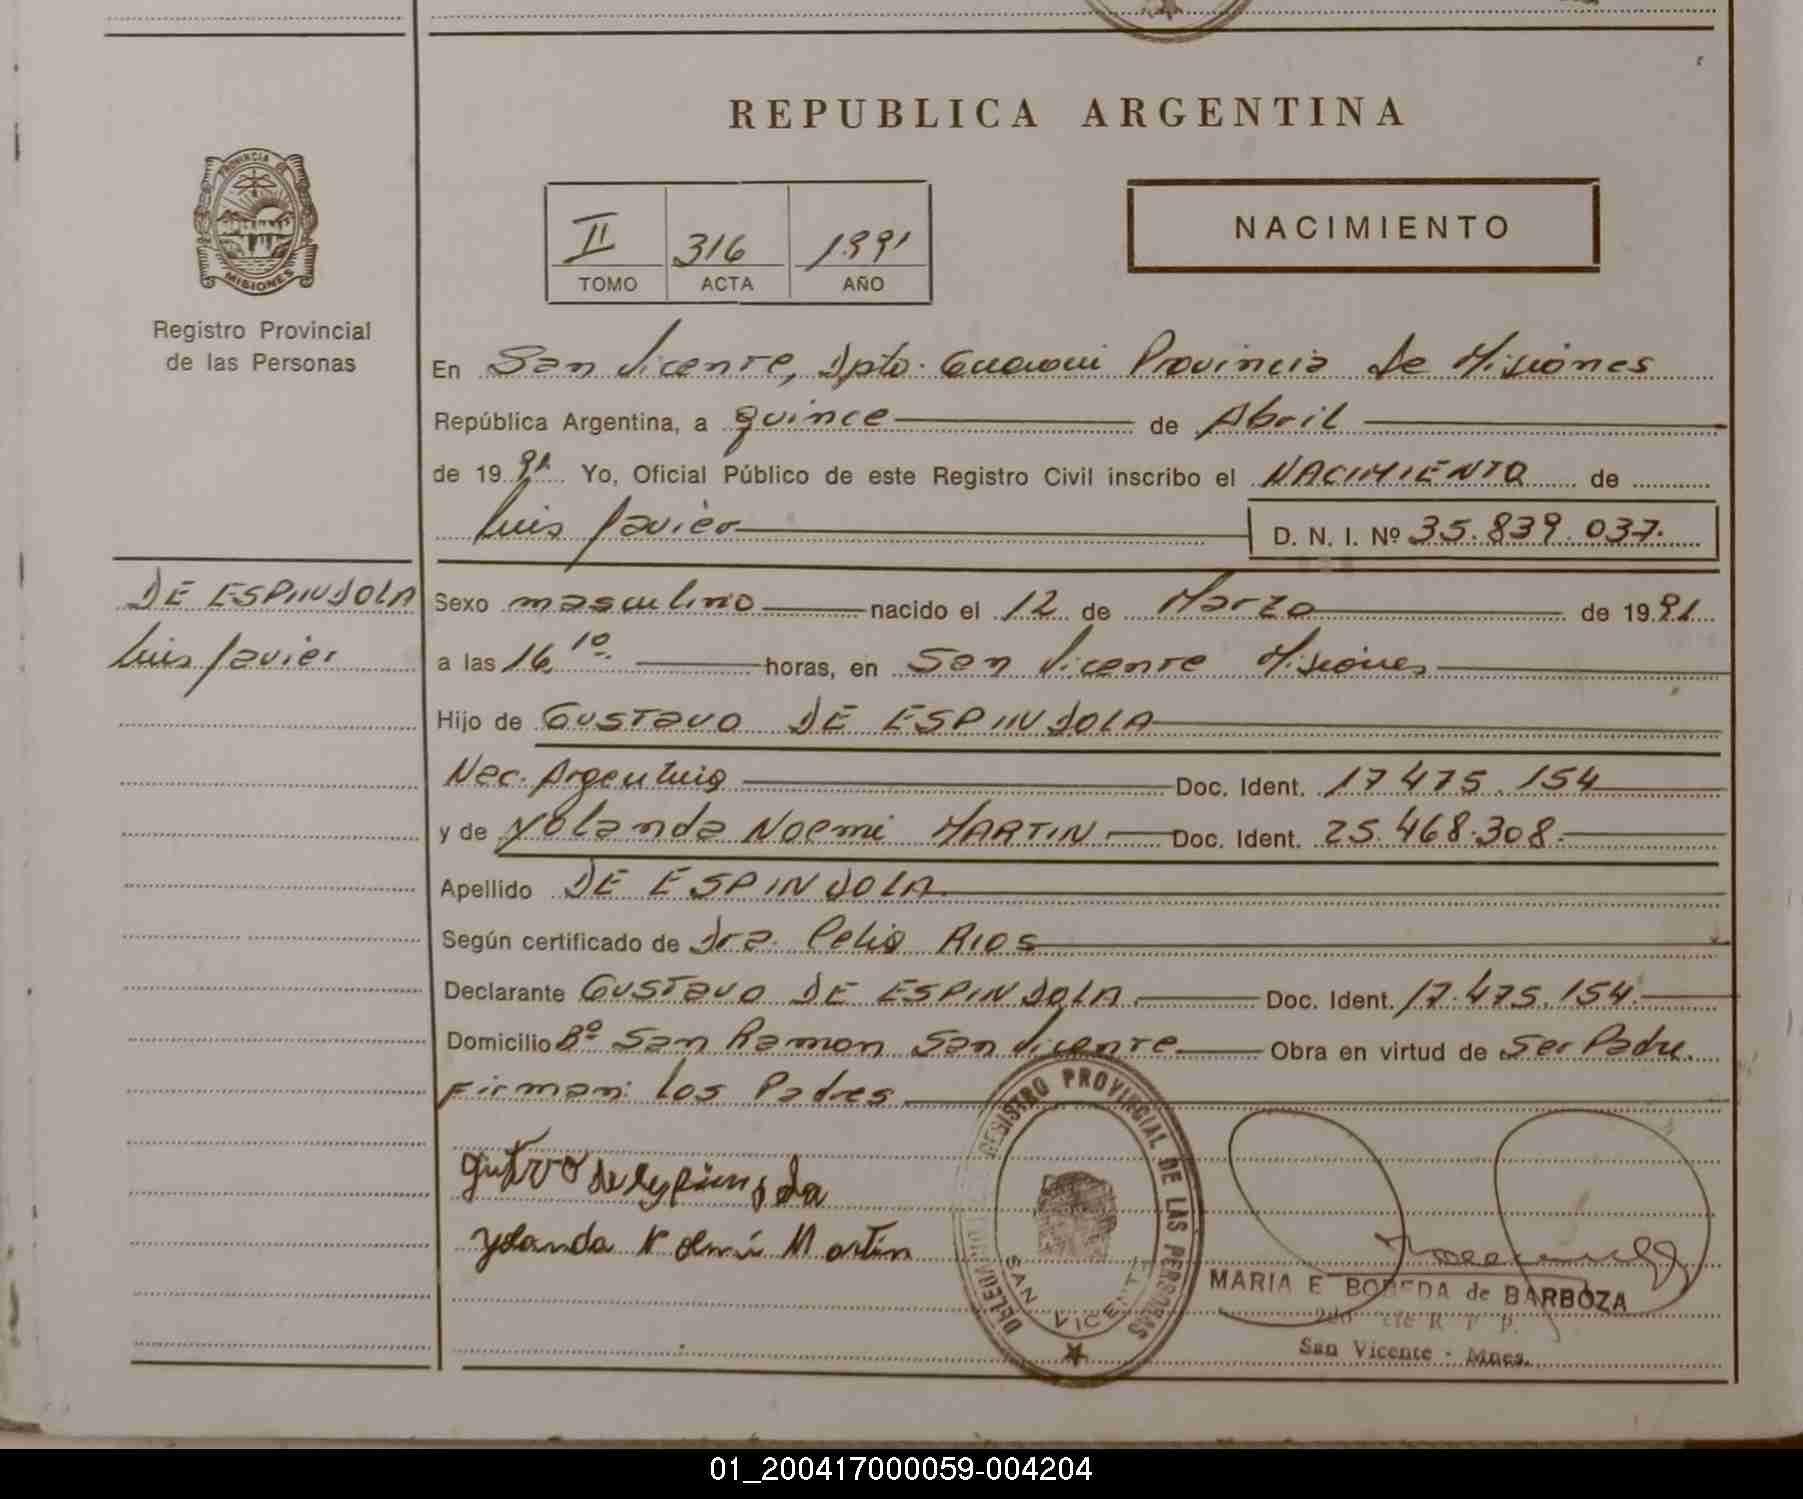 REPUBLICA ARGENTINA
PROVINCIA
MISIONES
Registro Provincial
de las Personas
II 316 1991
TOMO ACTA AÑO
NACIMIENTO
En San Vicente, Dpto. Guarani Provincia de Misiones
República Argentina, a quince de Abril
de 1991 Yo, Oficial Público de este Registro Civil inscribo el NACIMIENTO de
Luis Javier D. N. I. Nº 35.839.037.
DE ESPINDOLA
Luis Javier
Sexo masculino nacido el 12 de Marzo de 1991
a las 16,10. horas, en San Vicente Misiones
Hijo de Gustavo DE ESPINDOLA
Nac. Argentina Doc. Ident. 17.475.154
y de Yolanda Noemi MARTIN Doc. Ident. 25.468.308.
Apellido DE ESPINDOLA
Según certificado de Dra. Celia RIOS
Declarante GUSTAVO DE ESPINDOLA Doc. Ident. 17.475.154.
Domicilio Bº San Ramon San Vicente Obra en virtud de Ser Padre.
Firman: los Padres
Yolanda Noemi Martin
REGISTRO PROVINCIAL DE LAS PERSONAS
DELEGACION
SAN VICENTE
MARIA E BOBEDA de BARBOZA
San Vicente - Mnes.
01_200417000059-004204